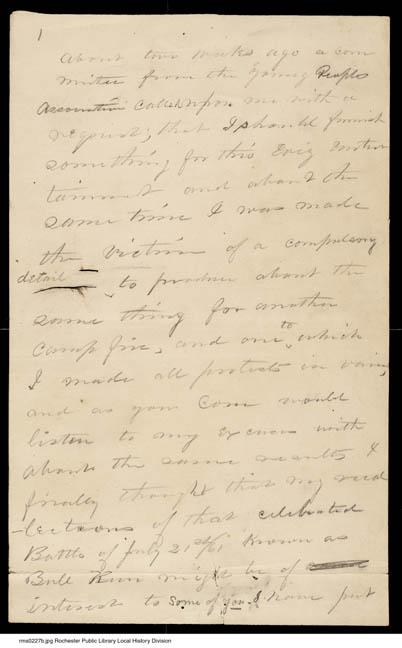 1
about two weeks ago a com
mittee from the Young Peoples
Association called upon me with a
request, that I should furnish
something for this Evig Enter
tainment and about the
same time I was made
the victim of a compulsory
detail to produce about the
same thing for another
Camp fire, and one to which
I made all protests in vain,
and as your Com would
listen to my excuses with
about the same results I
finally thought that my recol
lections of that celebrated
Battle of July 21st/61 Known as
Bull Run might be of
interest to some of you. I have put
rms0227b.jpg Rochester Public Library Local History Division